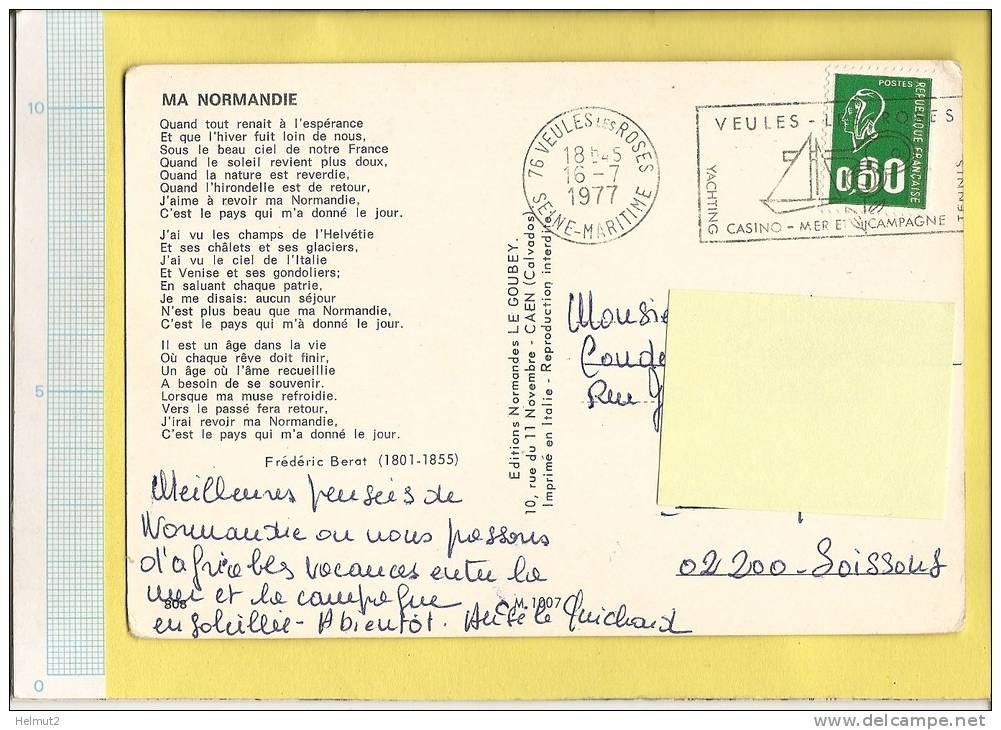 MA NORMANDIE
Quand tout renait à l'espérance
Et que l'hiver fuit loin de nous,
Sous le beau ciel de notre France
Quand le soleil revient plus doux,
Quand la nature est reverdie,
Quand l'hirondelle est de retour,
J'aime à revoir ma Normandie,
C'est le pays qui m'a donné le jour.
J'ai vu les champs de l'Helvétie
Et ses châlets et ses glaciers,
J'ai vu le ciel de l'Italie
Et Venise et ses gondoliers;
En saluant chaque patrie,
Je me disais: aucun séjour
N'est plus beau que ma Normandie,
C'est le pays qui m'à donné le jour.
Il est un âge dans la vie
Où chaque rêve doit finir,
Un âge où l'âme recueillie
A besoin de se souvenir.
Lorsque ma muse refroidie.
Vers le passé fera retour,
J'irai revoir ma Normandie,
C'est le pays qui m'a donné le jour.
Frédéric Berat (1801-1855)
Meilleures pensées de
Normandie ou nous passons
d'agréables vacances entre la
mer et la campagne
ensoleillée - A bientôt.
808
M. 1007
Editions Normandes LE GOUBEY.
10, rue du 11 Novembre - CAEN (Calvados)
Imprimé en Italie - Reproduction interdite
76 VEULES LES ROSES
18 H-5
16-7
1977
SEINE-MARITIME
VEULES - LES ROSES
YACHTING
CASINO - MER ET CAMPAGNE
TENNIS
POSTES
REPUBLIQUE FRANÇAISE
0,80
Monsie
Conde
Rue
02200 - Soissons
10
5
0
Helmut2
www.delcampe.net